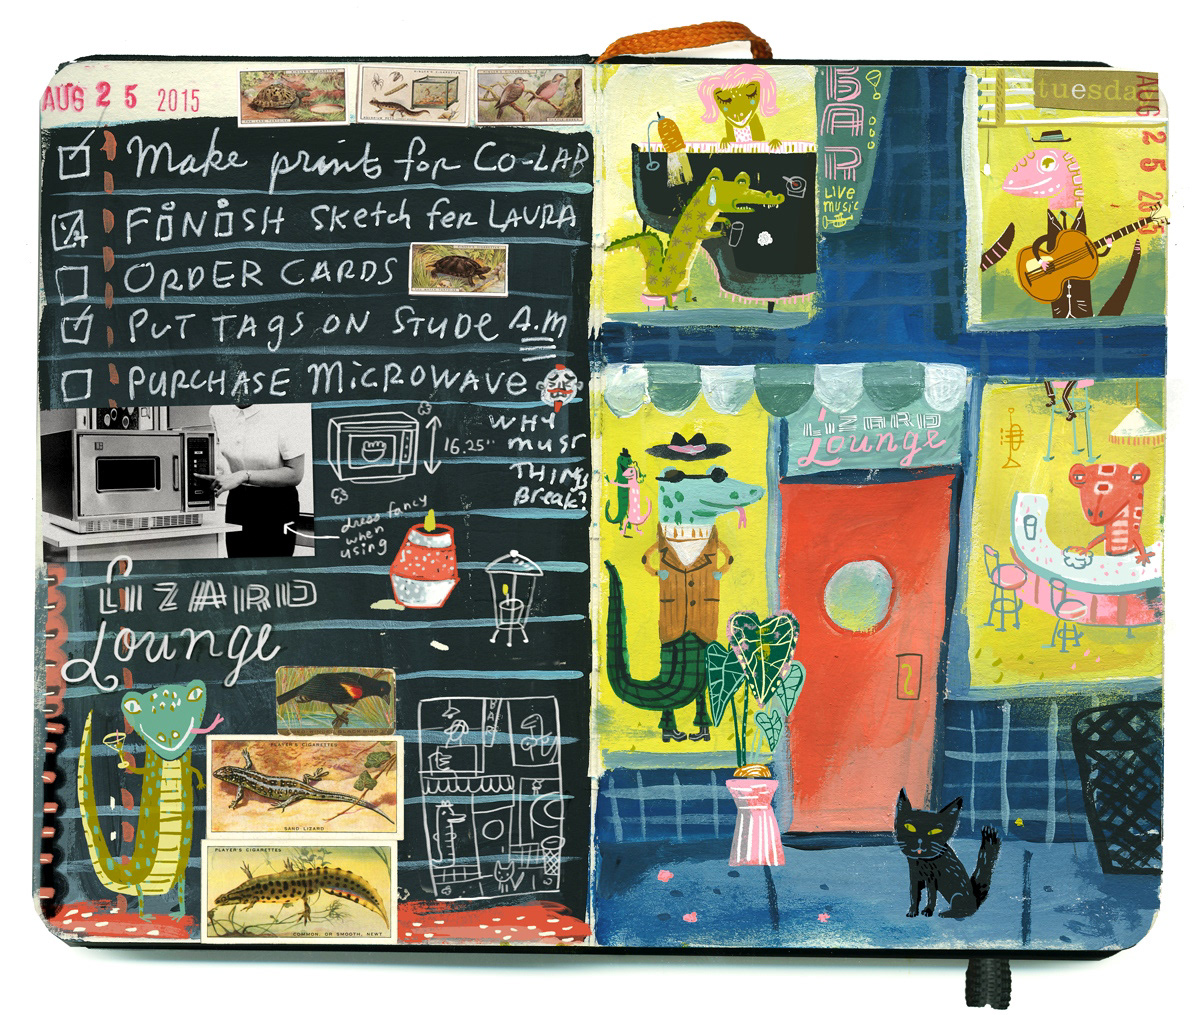 AUG 25 2015
Make prints for CO-LAB
FINISH Sketch fer LAURA
ORDER CARDS
PUT TAGS ON STUDE A.M
PURCHASE MICROWAVE
WHY
must
THINGS
Break?
16.25"
dress fancy
when
using
LIZARD
Lounge
PLAYER'S CIGARETTES
SAND LIZARD
PLAYER'S CIGARETTES
COMMON, OR SMOOTH, NEWT
BAR
LIVE
MUSIC
tuesda
AUG 25 20
LIZARD
Lounge